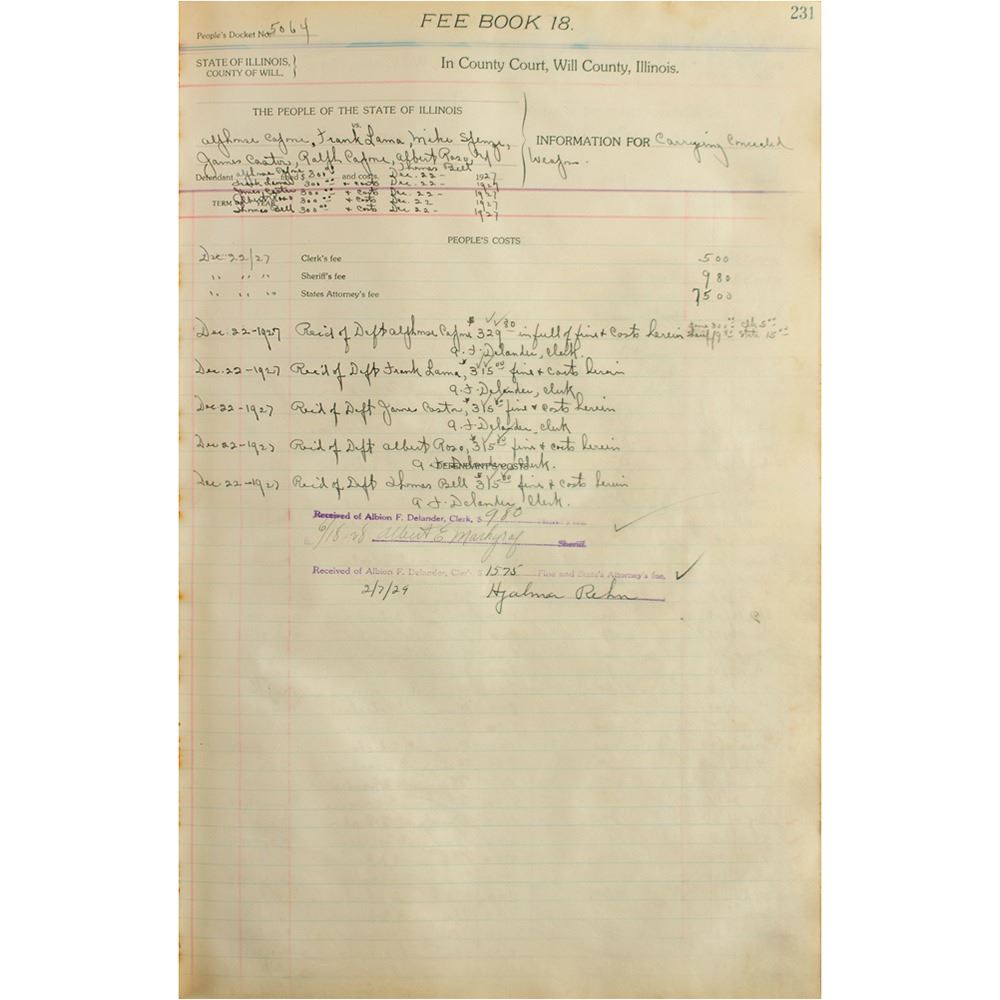 231
FEE BOOK 18.
People's Docket No. 5064
STATE OF ILLINOIS,
COUNTY OF WILL.
In County Court, Will County, Illinois.
THE PEOPLE OF THE STATE OF ILLINOIS
vs.
Alphonse Capone, Frank Lama, Mike
James Castor, Ralph Capone, Albert Roso,
Thomas Bell
INFORMATION FOR Carrying Concealed
Weapon.
Defendant Alphonse Capone fined $ 300 00 and costs Dec. 22 - 1927
Frank Lama 300 00 & costs Dec. 22 - 1927
James Castor 300 00 & costs Dec. 22 - 1927
TERM Albert Roso 300 00 & costs Dec. 22 1927
Thomas Bell 300 00 & costs Dec. 22 - 1927
PEOPLE'S COSTS
Dec 22/27 Clerk's fee 5 00
" " " Sheriff's fee 9 80
" " " States Attorney's fee 75 00
Dec. 22-1927 Rec'd of Deft Alphonse Capone $329 80 in full of fine & costs herein
A. F. Delander, Clerk.
Dec. 22-1927 Rec'd of Deft Frank Lama, $315 00 fine & costs herein
A. F. Delander, Clerk
Dec 22-1927 Rec'd of Deft James Castor, $315 00 fine & costs herein
A. F. Delander, Clerk
Dec 22-1927 Rec'd of Deft Albert Roso, $315 00 fine & costs herein
A. F. Delander, Clerk.
DEFENDANT'S COSTS
Dec 22-1927 Rec'd of Deft Thomas Bell $315 00 fine & costs herein
A. F. Delander, Clerk.
Received of Albion F. Delander, Clerk, $ 9 80
6/18-28 Albert E. Markgraf Sheriff.
Received of Albion F. Delander, Clerk $ 1575 Fine and State's Attorney's fee.
2/7/29 Hjalmar Rehn